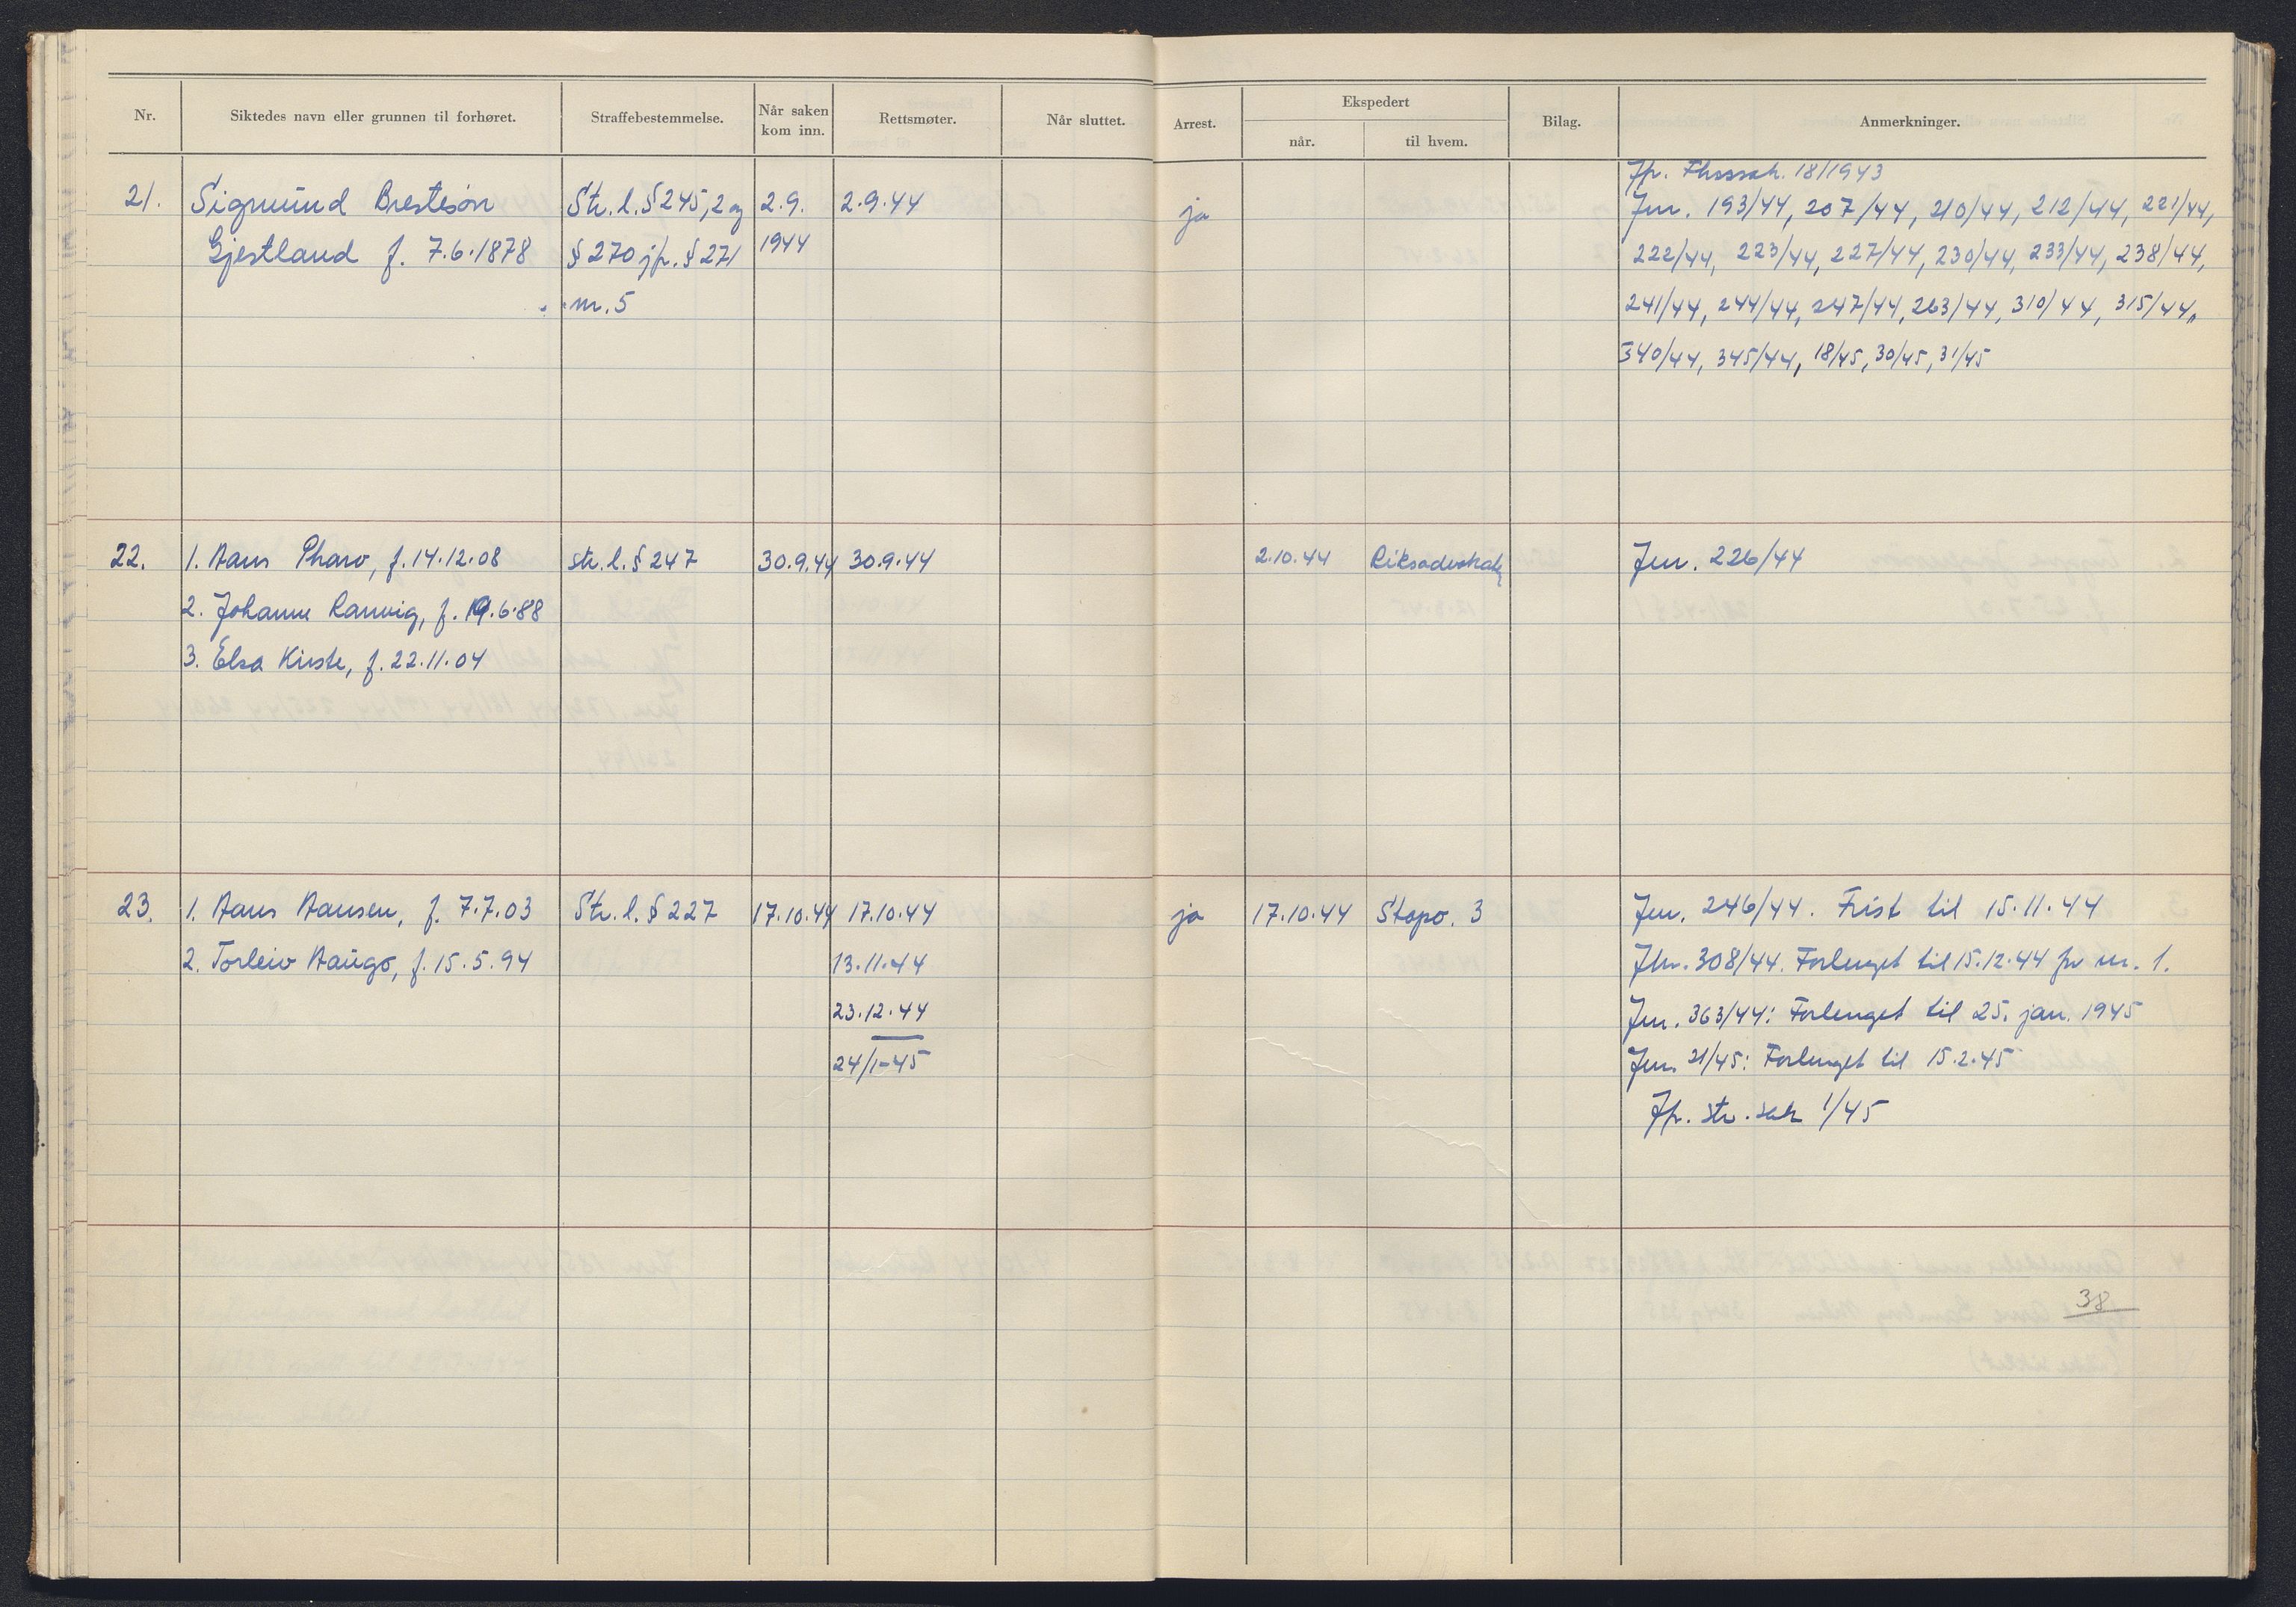 Nr. Siktedes navn eller grunnen til forhøret. Straffebestemmelse. Når saken kom inn. Rettsmøter. Når sluttet. Arrest. Ekspedert når. til hvem. Bilag. Anmerkninger.
Jfr. 18/1943
21. Sigmund Brestesøn Str. l. § 245, 2 og 2.9. 2.9.44 ja Jnr. 193/44, 207/44, 210/44, 212/44, 221/44,
Gjestland f. 7.6.1878 § 270 jfr. § 271 1944 222/44, 223/44, 227/44, 230/44, 233/44, 238/44,
nr. 5 241/44, 244/44, 247/44, 263/44, 310/44, 315/44,
340/44, 345/44, 18/45, 30/45, 31/45
22. 1. Hans Pharo, f. 14.12.08 str. l. § 247 30.9.44 30.9.44 2.10.44 Riksadvokaten Jnr. 226/44
2. Johanne Ranvig, f. 19.6.88
3. Elsa Kirste, f. 22.11.04
23. 1. Hans Hansen, f. 7.7.03 Str. l. § 227 17.10.44 17.10.44 ja 17.10.44 Stapo. 3 Jnr. 246/44. Frist til 15.11.44
2. Torleiv Haugo, f. 15.5.94 13.11.44 Jnr. 308/44. Forlenget til 15.12.44 for nr. 1.
23.12.44 Jnr. 363/44: Forlenget til 25. jan. 1945
24/1-45 Jnr. 21/45: Forlenget til 15.2.45
Jfr. str. sak 1/45
38